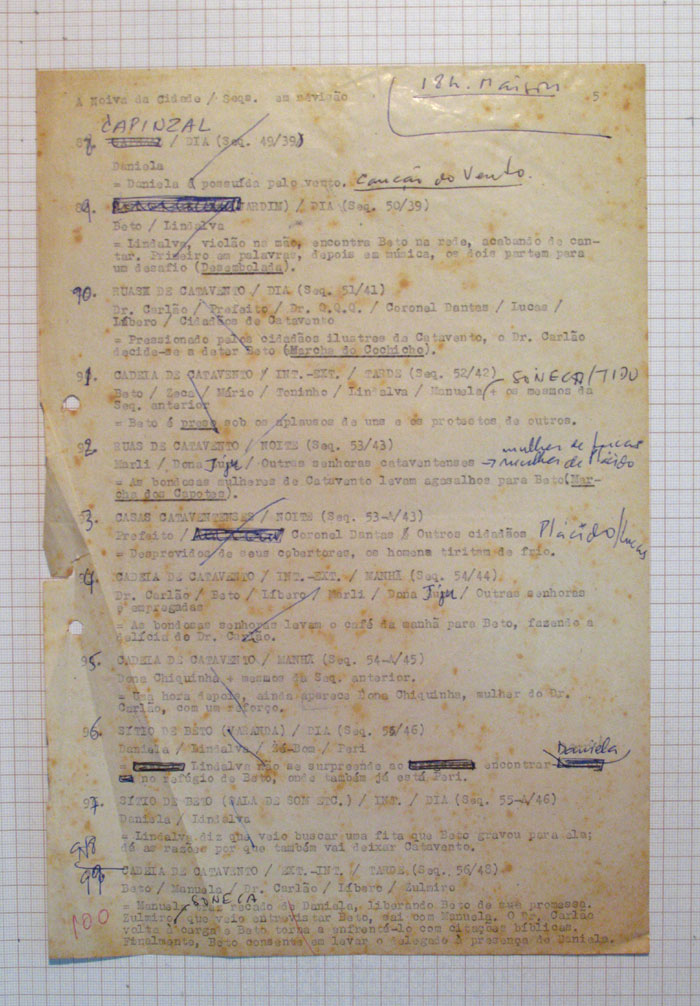 A Noiva da Cidade / Seqs. em revisão
18h. Maison
5
CAPINZAL
/ DIA (Seq. 49/39)
Daniela
= Daniela é possuída pelo vento. Canção do Vento.
89. (JARDIM) / DIA (Seq. 50/39)
Beto / Lindalva
= Lindalva, violão na mão, encontra Beto na rede, acabando de can-
tar. Primeiro em palavras, depois em música, os dois partem para
um desafio (Desembolada).
90. RUAS DE CATAVENTO / DIA (Seq. 51/41)
Dr. Carlão / Prefeito / Dr. Q.Q.Q. / Coronel Dantas / Lucas /
Líbero / Cidadãos de Catavento
= Pressionado pelos cidadãos ilustres de Catavento, o Dr. Carlão
decide-se a deter Beto (Marcha do Cochicho).
91. CADEIA DE CATAVENTO / INT.-EXT. / TARDE (Seq. 52/42) SONECA/TIDO
Beto / Zeca / Mário / Toninho / Lindalva / Manuela + os mesmos da
Seq. anterior
= Beto é preso sob os aplausos de uns e os protestos de outros.
92. RUAS DE CATAVENTO / NOITE (Seq. 53/43)
mulher de Lucas
Marli / Dona Juju / Outras senhoras cataventenses → mulher de Plácido
= As bondosas mulheres de Catavento levam agasalhos para Beto (Mar-
cha dos Capotes).
93. CASAS CATAVENTENSES / NOITE (Seq. 53-A/43)
Prefeito / Coronel Dantas / Outros cidadãos Plácido/Lucas
= Desprovidos de seus cobertores, os homens tiritam de frio.
94. CADEIA DE CATAVENTO / INT.-EXT. / MANHÃ (Seq. 54/44)
Dr. Carlão / Beto / Líbero / Marli / Dona Juju / Outras senhoras
e empregadas
= As bondosas senhoras levam o café da manhã para Beto, fazendo a
delícia do Dr. Carlão.
95. CADEIA DE CATAVENTO / MANHÃ (Seq. 54-A/45)
Dona Chiquinha + mesmos da Seq. anterior.
= Uma hora depois, ainda aparece Dona Chiquinha, mulher do Dr.
Carlão, com um reforço.
96. SÍTIO DE BETO (VARANDA) / DIA (Seq. 55/46)
Daniela / Lindalva / Zé-Bom / Peri
Daniela
= Lindalva não se surpreende ao encontrar
no refúgio de Beto, onde também já está Peri.
97. SÍTIO DE BETO (SALA DE SOM ETC.) / INT. / DIA (Seq. 55-A/46)
Daniela / Lindalva
= Lindalva diz que veio buscar uma fita que Beto gravou para ela;
dá as razões por que também vai deixar Catavento.
98
99 CADEIA DE CATAVENTO / EXT.-INT. / TARDE (Seq. 56/48)
Beto / Manuela / Dr. Carlão / Líbero / Zulmiro
SONECA
100
= Manuela traz recado de Daniela, liberando Beto de sua promessa.
Zulmiro, que veio entrevistar Beto, sai com Manuela. O Dr. Carlão
volta à carga e Beto torna a enfrentá-lo com citações bíblicas.
Finalmente, Beto consente em levar o delegado à presença de Daniela.